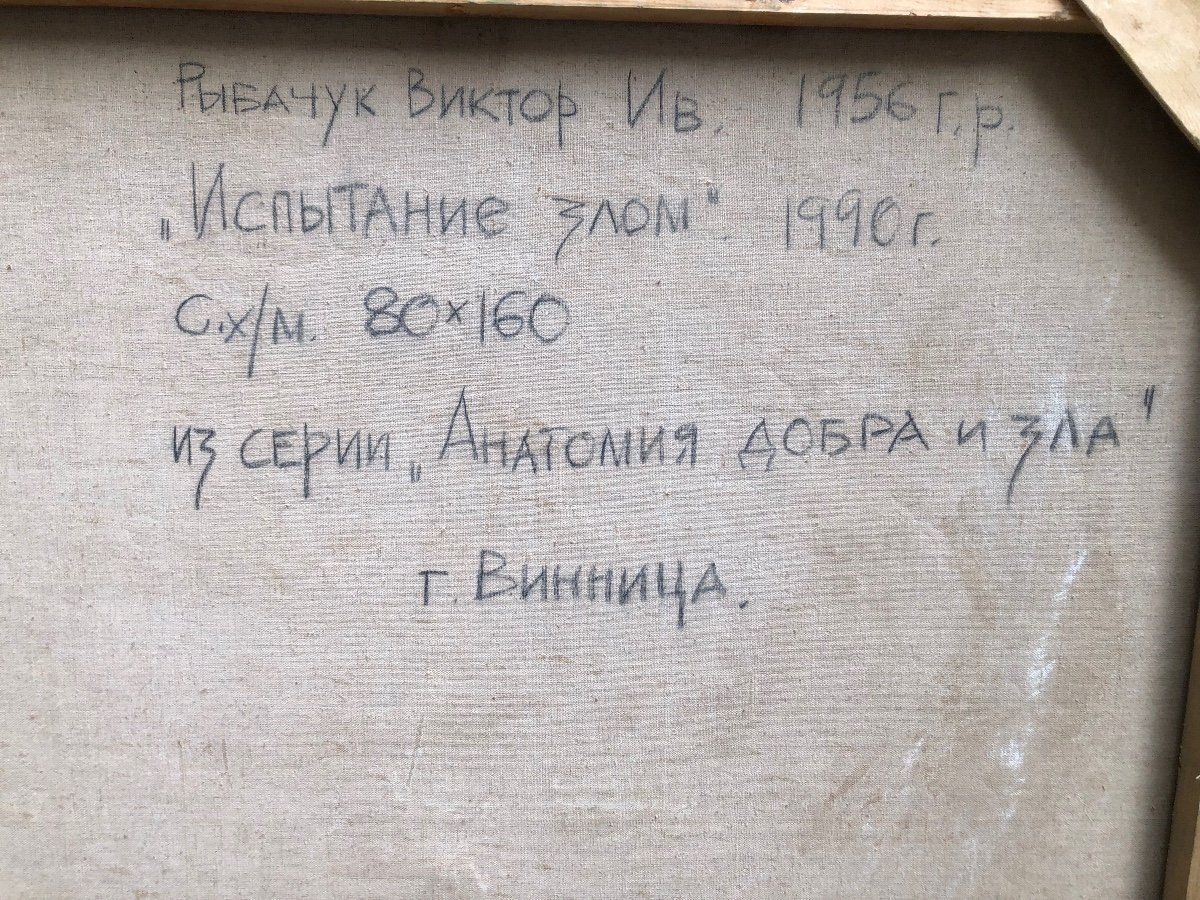 Рыбачук Виктор Ив. 1956 г.р.
„Испытание злом". 1990г.
с.х/м. 80×160
из серии „Анатомия добра и зла"
г. Винница.